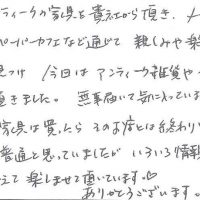 ティークの家具を貴社から頂き、
ペーパーカフェなど通じて 親しみや楽
見つけ 今日は アンティーク雑貨や
頂きました。 無事届いて気に入っていま
家具は買ったら そのお店とは終わり
普通と思っていましたが いろいろ情報
えて 楽しませて頂いています♡
ありがとうございます。